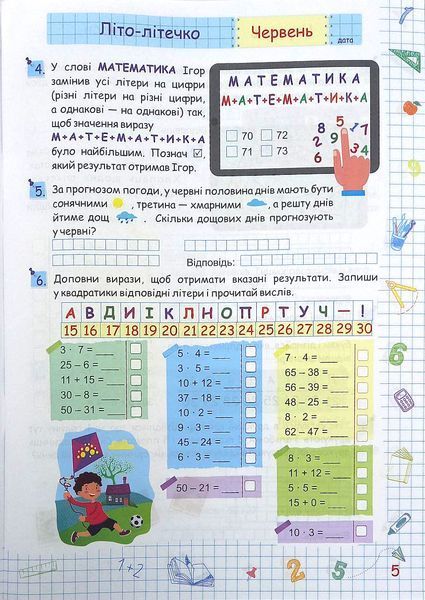 Літо-літечко
Червень
дата
4. У слові МАТЕМАТИКА Ігор
замінив усі літери на цифри
(різні літери на різні цифри,
а однакові — на однакові) так,
щоб значення виразу
М+А+Т+Е+М+А+Т+И+К+А
було найбільшим. Познач ☑,
який результат отримав Ігор.
МАТЕМАТИКА
М+А+Т+Е+М+А+Т+И+К+А
70 72
71 73
5
8 1 7
2 9
6 3 4
5. За прогнозом погоди, у червні половина днів мають бути
сонячними , третина — хмарними , а решту днів
йтиме дощ . Скільки дощових днів прогнозують
у червні?
Відповідь:
6. Доповни вирази, щоб отримати вказані результати. Запиши
у квадратики відповідні літери і прочитай вислів.
А В Д И І К Л Н О П Р Т У Ч — !
15 16 17 18 19 20 21 22 23 24 25 26 28 29 30
3 · 7 = ___
25 – 6 = ___
11 + 15 = ___
30 – 8 = ___
50 – 31 = ___
5 · 4 = ___
3 · 5 = ___
10 + 12 = ___
37 – 18 = ___
10 · 2 = ___
9 · 3 = ___
45 – 24 = ___
6 · 3 = ___
50 – 21 = ___
7 · 4 = ___
65 – 38 = ___
56 – 39 = ___
48 – 25 = ___
8 · 2 = ___
62 – 47 = ___
8 · 3 = ___
11 + 12 = ___
5 · 5 = ___
15 + 0 = ___
10 · 3 = ___
6
1+2
2 5
5